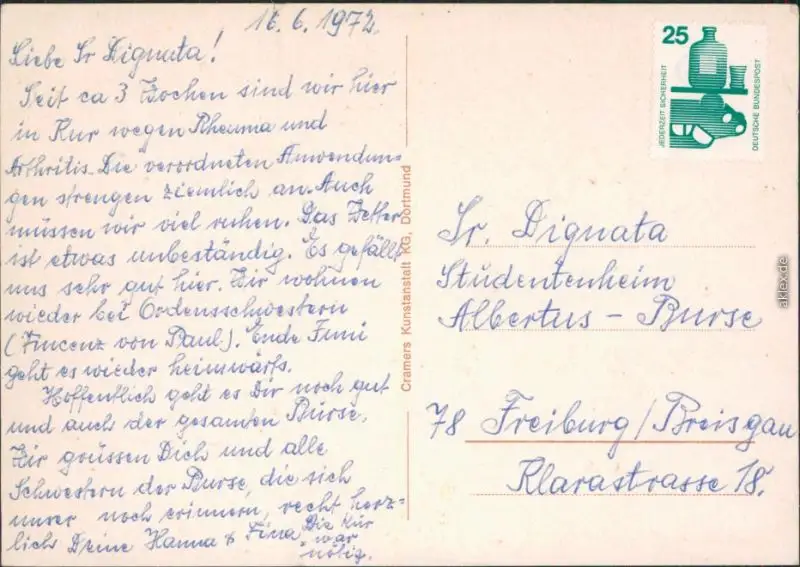 16.6.1972.
Liebe Sr Dignata!
Seit ca 3 Wochen sind wir hier
in Kur wegen Rheuma und
Arthritis. Die verordneten Anwendun-
gen strengen ziemlich an. Auch
müssen wir viel ruhen. Das Wetter
ist etwas unbeständig. Es gefällt
uns sehr gut hier. Wir wohnen
wieder bei Ordensschwestern
(Vincenz von Paul). Ende Juni
geht es wieder heimwärts.
Hoffentlich geht es Dir noch gut
und auch der gesamten Burse.
Wir grüssen Dich und alle
Schwestern der Burse, die sich
unser noch erinnern, recht herz-
lich Deine Hanna & Fina Die Kur
war
nötig.
Cramers Kunstanstalt KG, Dortmund
25
JEDERZEIT SICHERHEIT
DEUTSCHE BUNDESPOST
Sr. Dignata
Studentenheim
Albertus - Burse
78 Freiburg/Breisgau
Klarastrasse 18.
aklex.de